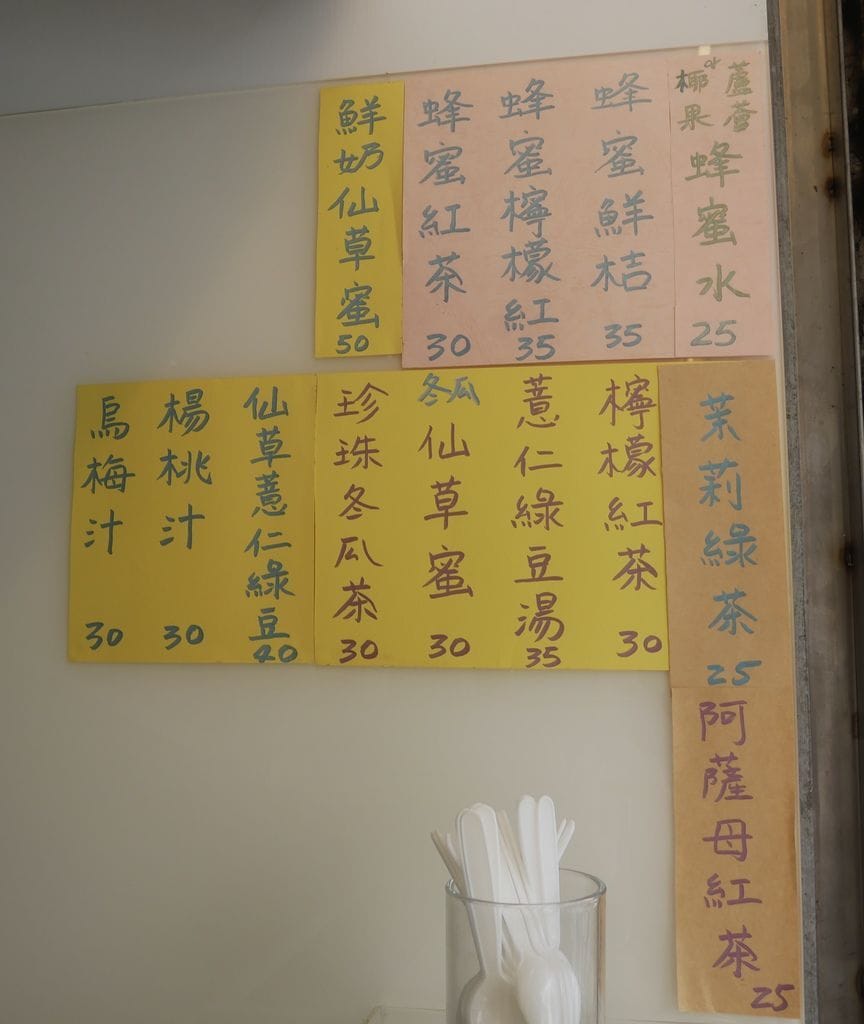 蘆薈or椰果蜂蜜水 25
蜂蜜鮮桔 35
蜂蜜檸檬紅 35
蜂蜜紅茶 30
鮮奶仙草蜜 50
茉莉綠茶 25
檸檬紅茶 30
薏仁綠豆湯 35
冬瓜仙草蜜 30
珍珠冬瓜茶 30
仙草薏仁綠豆 40
楊桃汁 30
烏梅汁 30
阿薩母紅茶 25